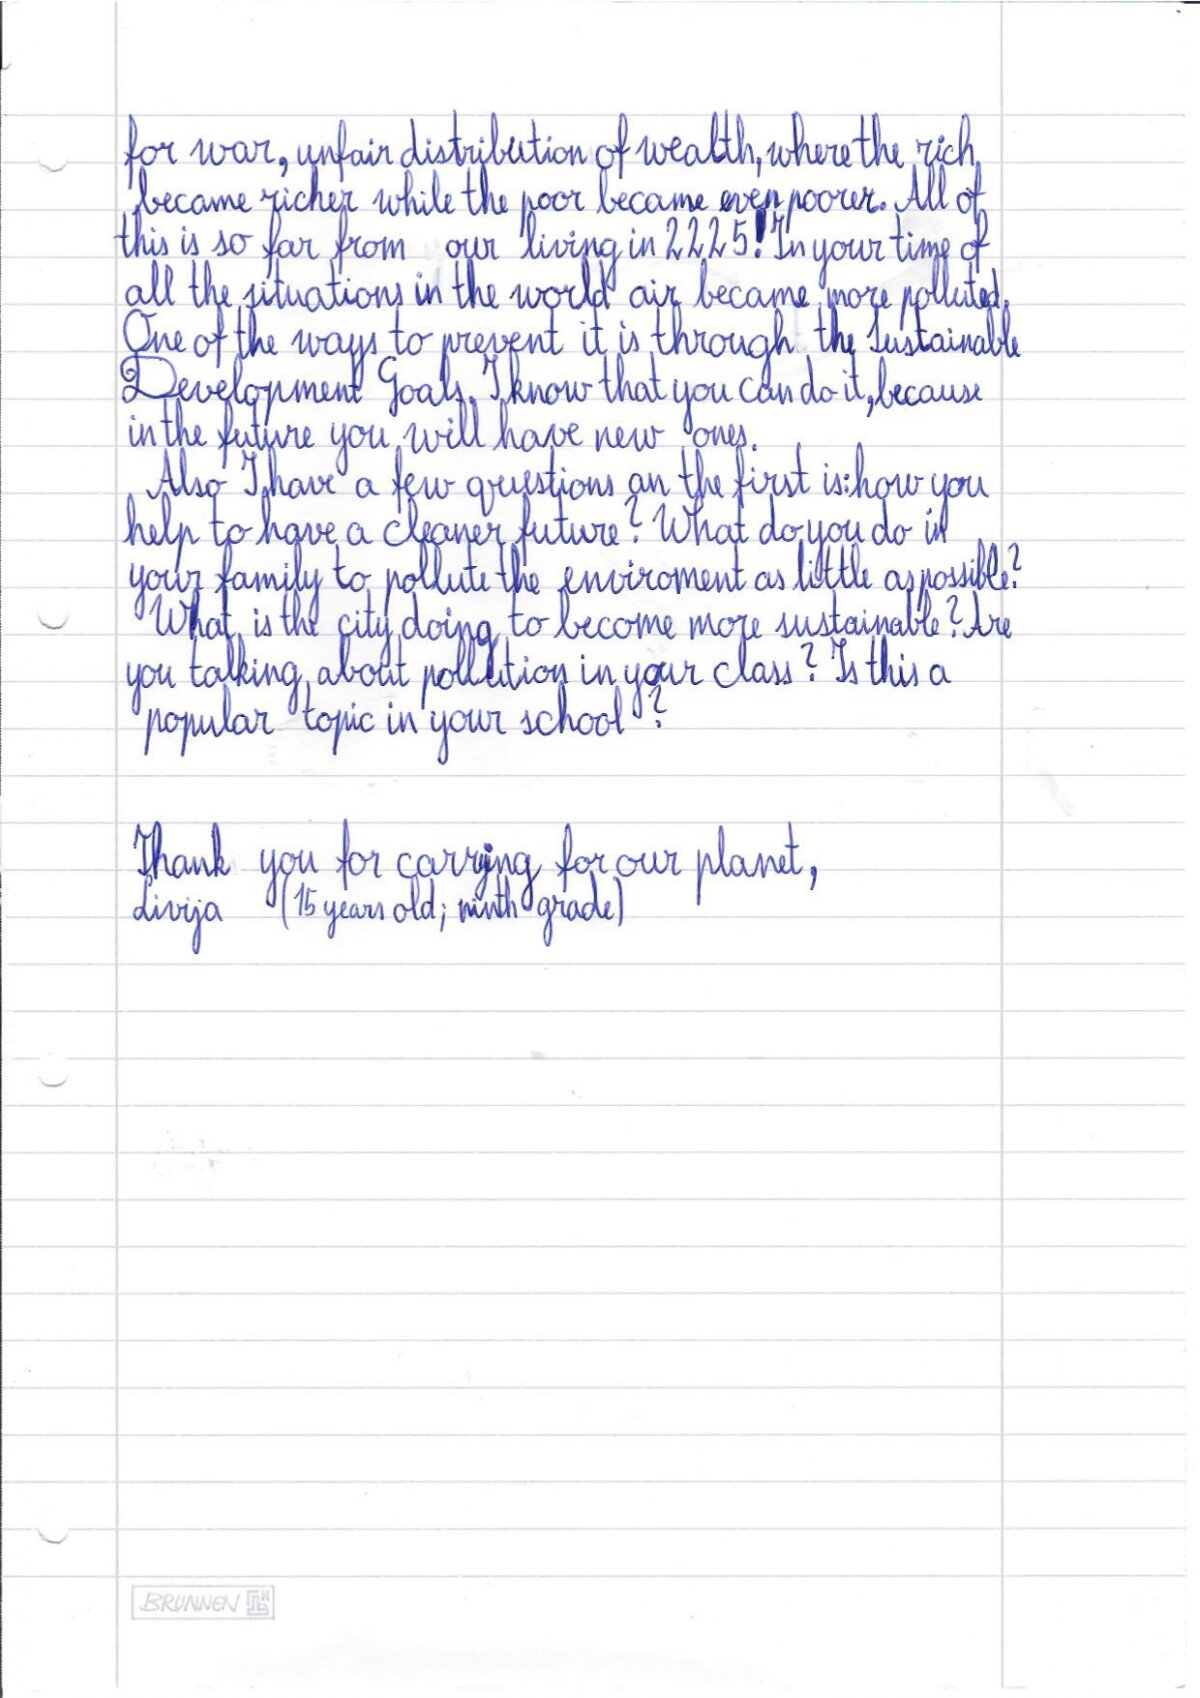 for war, unfair distribution of wealth, where the rich
became richer while the poor became even poorer. All of
this is so far from our living in 2225! In your time of
all the situations in the world air became more polluted.
One of the ways to prevent it is through the Sustainable
Development Goals. I know that you can do it, because
in the future you will have new ones.
Also I have a few questions an the first is: how you
help to have a cleaner future? What do you do in
your family to pollute the enviroment as little as possible?
What is the city doing to become more sustainable? Are
you talking about pollution in your class? Is this a
popular topic in your school?
Thank you for carrying for our planet,
Livija (15 years old; ninth grade)
BRUNNEN